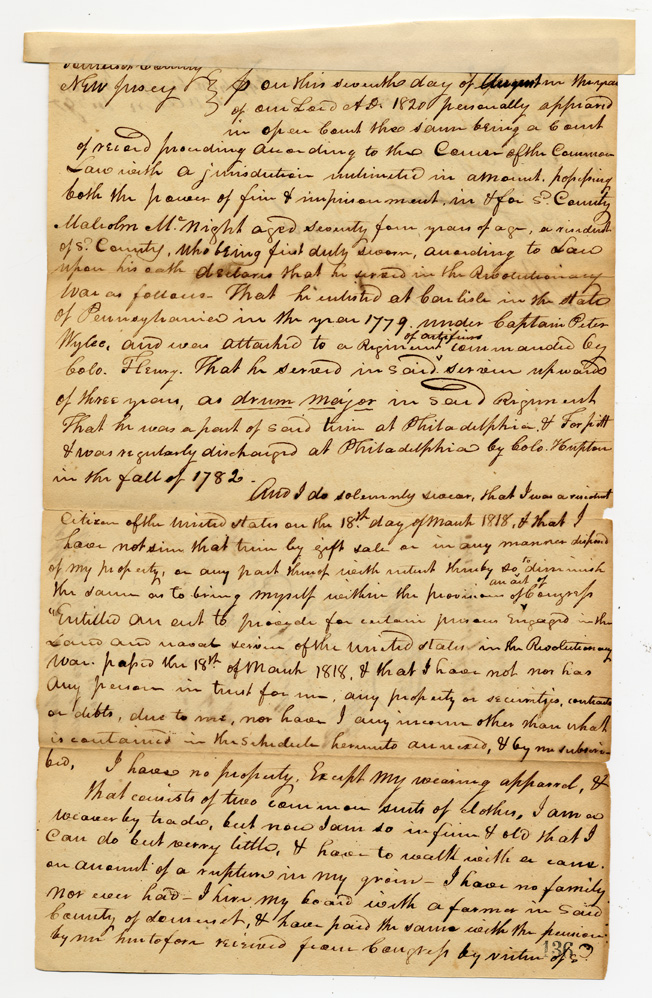 Somerset County
New Jersey } on this seventh day of August in the year
of our Lord A.D. 1820 personally appeared
in open Court the same being a Court
of record proceeding according to the Course of the Common
Law with a jurisdiction unlimited in amount. possessing
both the power of fine & imprisonment, in & for sd. County
Malcolm Mc.Night aged seventy four years of age, a resident
of sd. County, who being first duly sworn, according to Law
upon his oath declares that he served in the Revolutionary
War as follows. That he enlisted at Carlisle in the state
of Pennsylvania in the year 1779. under Captain Peter
Wylee, and was attached to a Regiment of artificers commanded by
Colo. Fleury. That he served in said serven upwards
of three years, as drum major in said Regiment
That he was a part of said time at Philadelphia, & Forpitt
& was regularly discharged at Philadelphia by Colo. Hupton
in the fall of 1782.
And I do solemnly swear, that I was a resident
Citizen of the United States on the 18th day of March 1818, & that I
have not sinn that time by gift sale or in any manner disposed
of my property, or any part thereof with intent thereby so to diminish
the same as to bring myself within the provisions of an act of Congress
"Entitled An act to provide for certain persons Engaged in the
Land and naval service of the united states in the Revolutionary
War. passed the 18th of March 1818, & that I have not nor has
any person in trust for me, any property or securities, contracts
or debts, due to me, nor have I any income other than what
is contained in the schedule hereunto annexed, & by me subscri-
bed. I have no property, Except my wearing apparel, &
that consists of two common suits of clothes, I am a
weaver by trade, but now I am so infirm & old that I
can do but verry little, & have to walk with a cane.
on account of a rupture in my groin - I have no family
nor ever had - I hire my board with a farmer in said
County of Somerset, & have paid the same with the pension
by me heretofore received from Congress by virtue of sd.
136